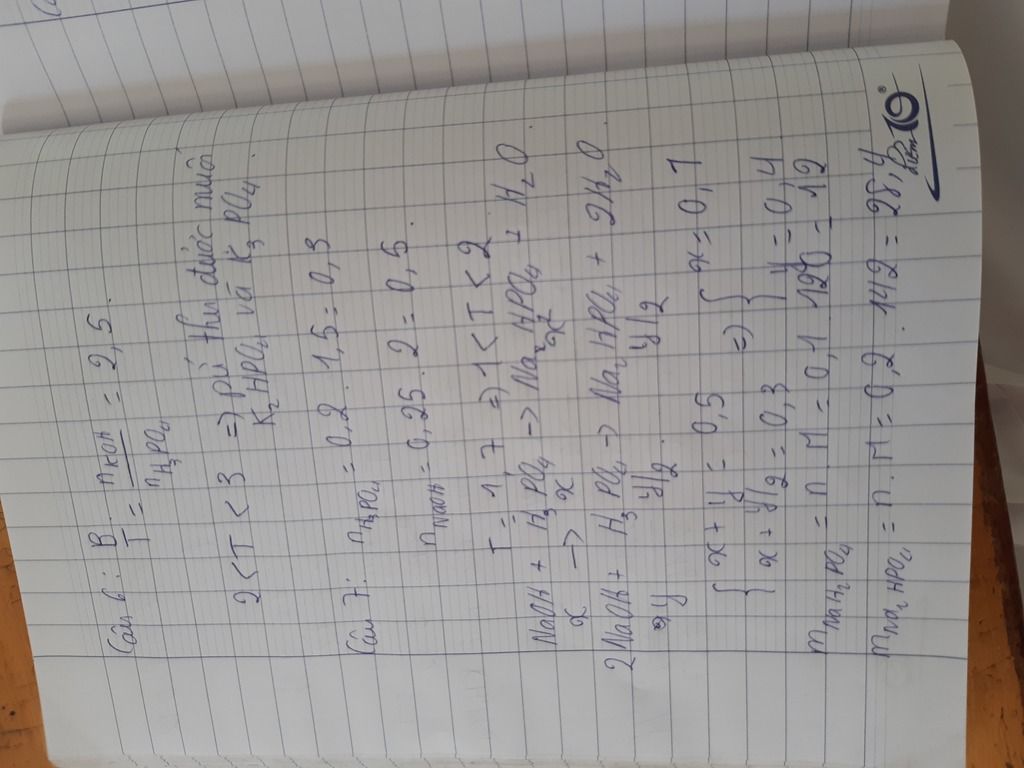 Câu 6: B.
T = nKOH / nH3PO4 = 2,5.
2 < T < 3 => pứ thu được muối
K2HPO4 và K3PO4.
Câu 7: nH3PO4 = 0,2. 1,5 = 0,3
nNaOH = 0,25. 2 = 0,5.
T = 1,7 => 1 < T < 2
NaOH + H3PO4 -> Na2HPO4 + H2O.
x -> x x
2NaOH + H3PO4 -> Na2HPO4 + 2H2O.
y y/2. y/2
{ x + y = 0,5 => { x = 0,1
x + y/2 = 0,3 y = 0,4
mNaH2PO4 = n. M = 0,1. 120 = 12
mNa2HPO4 = n. M = 0,2. 142 = 28,4